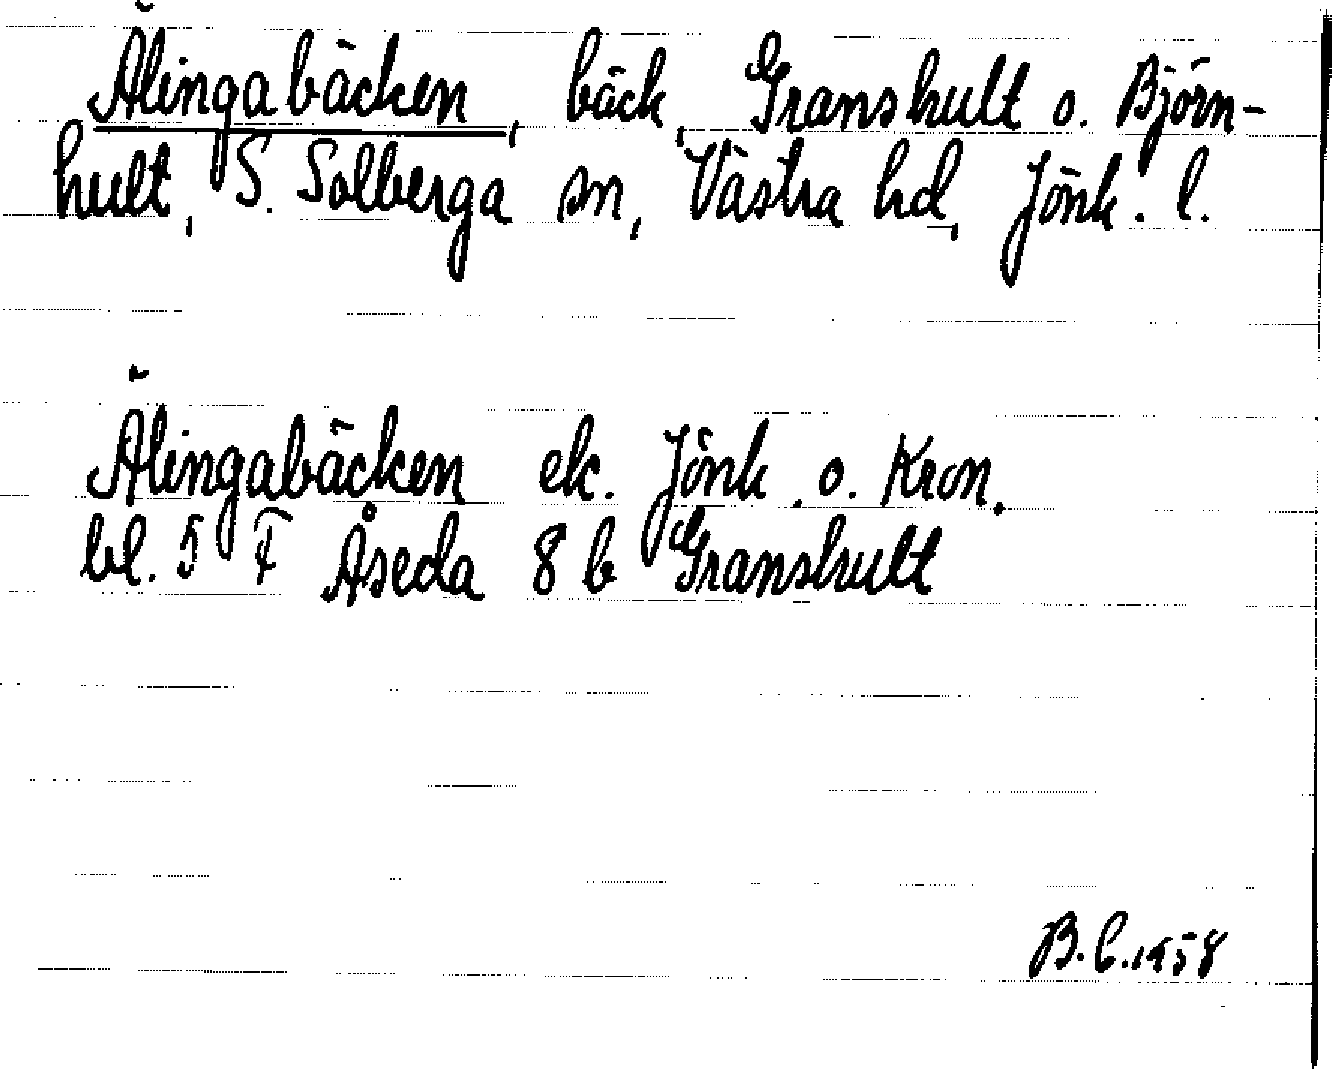 Älingabäcken, bäck, Granshult o. Björn-
hult, S. Solberga sn, Västra hd, Jönk. l.
Älingabäcken ek. Jönk. o. Kron.
bl. 5 F Åseda 8 b Granshult
B.C. 1958